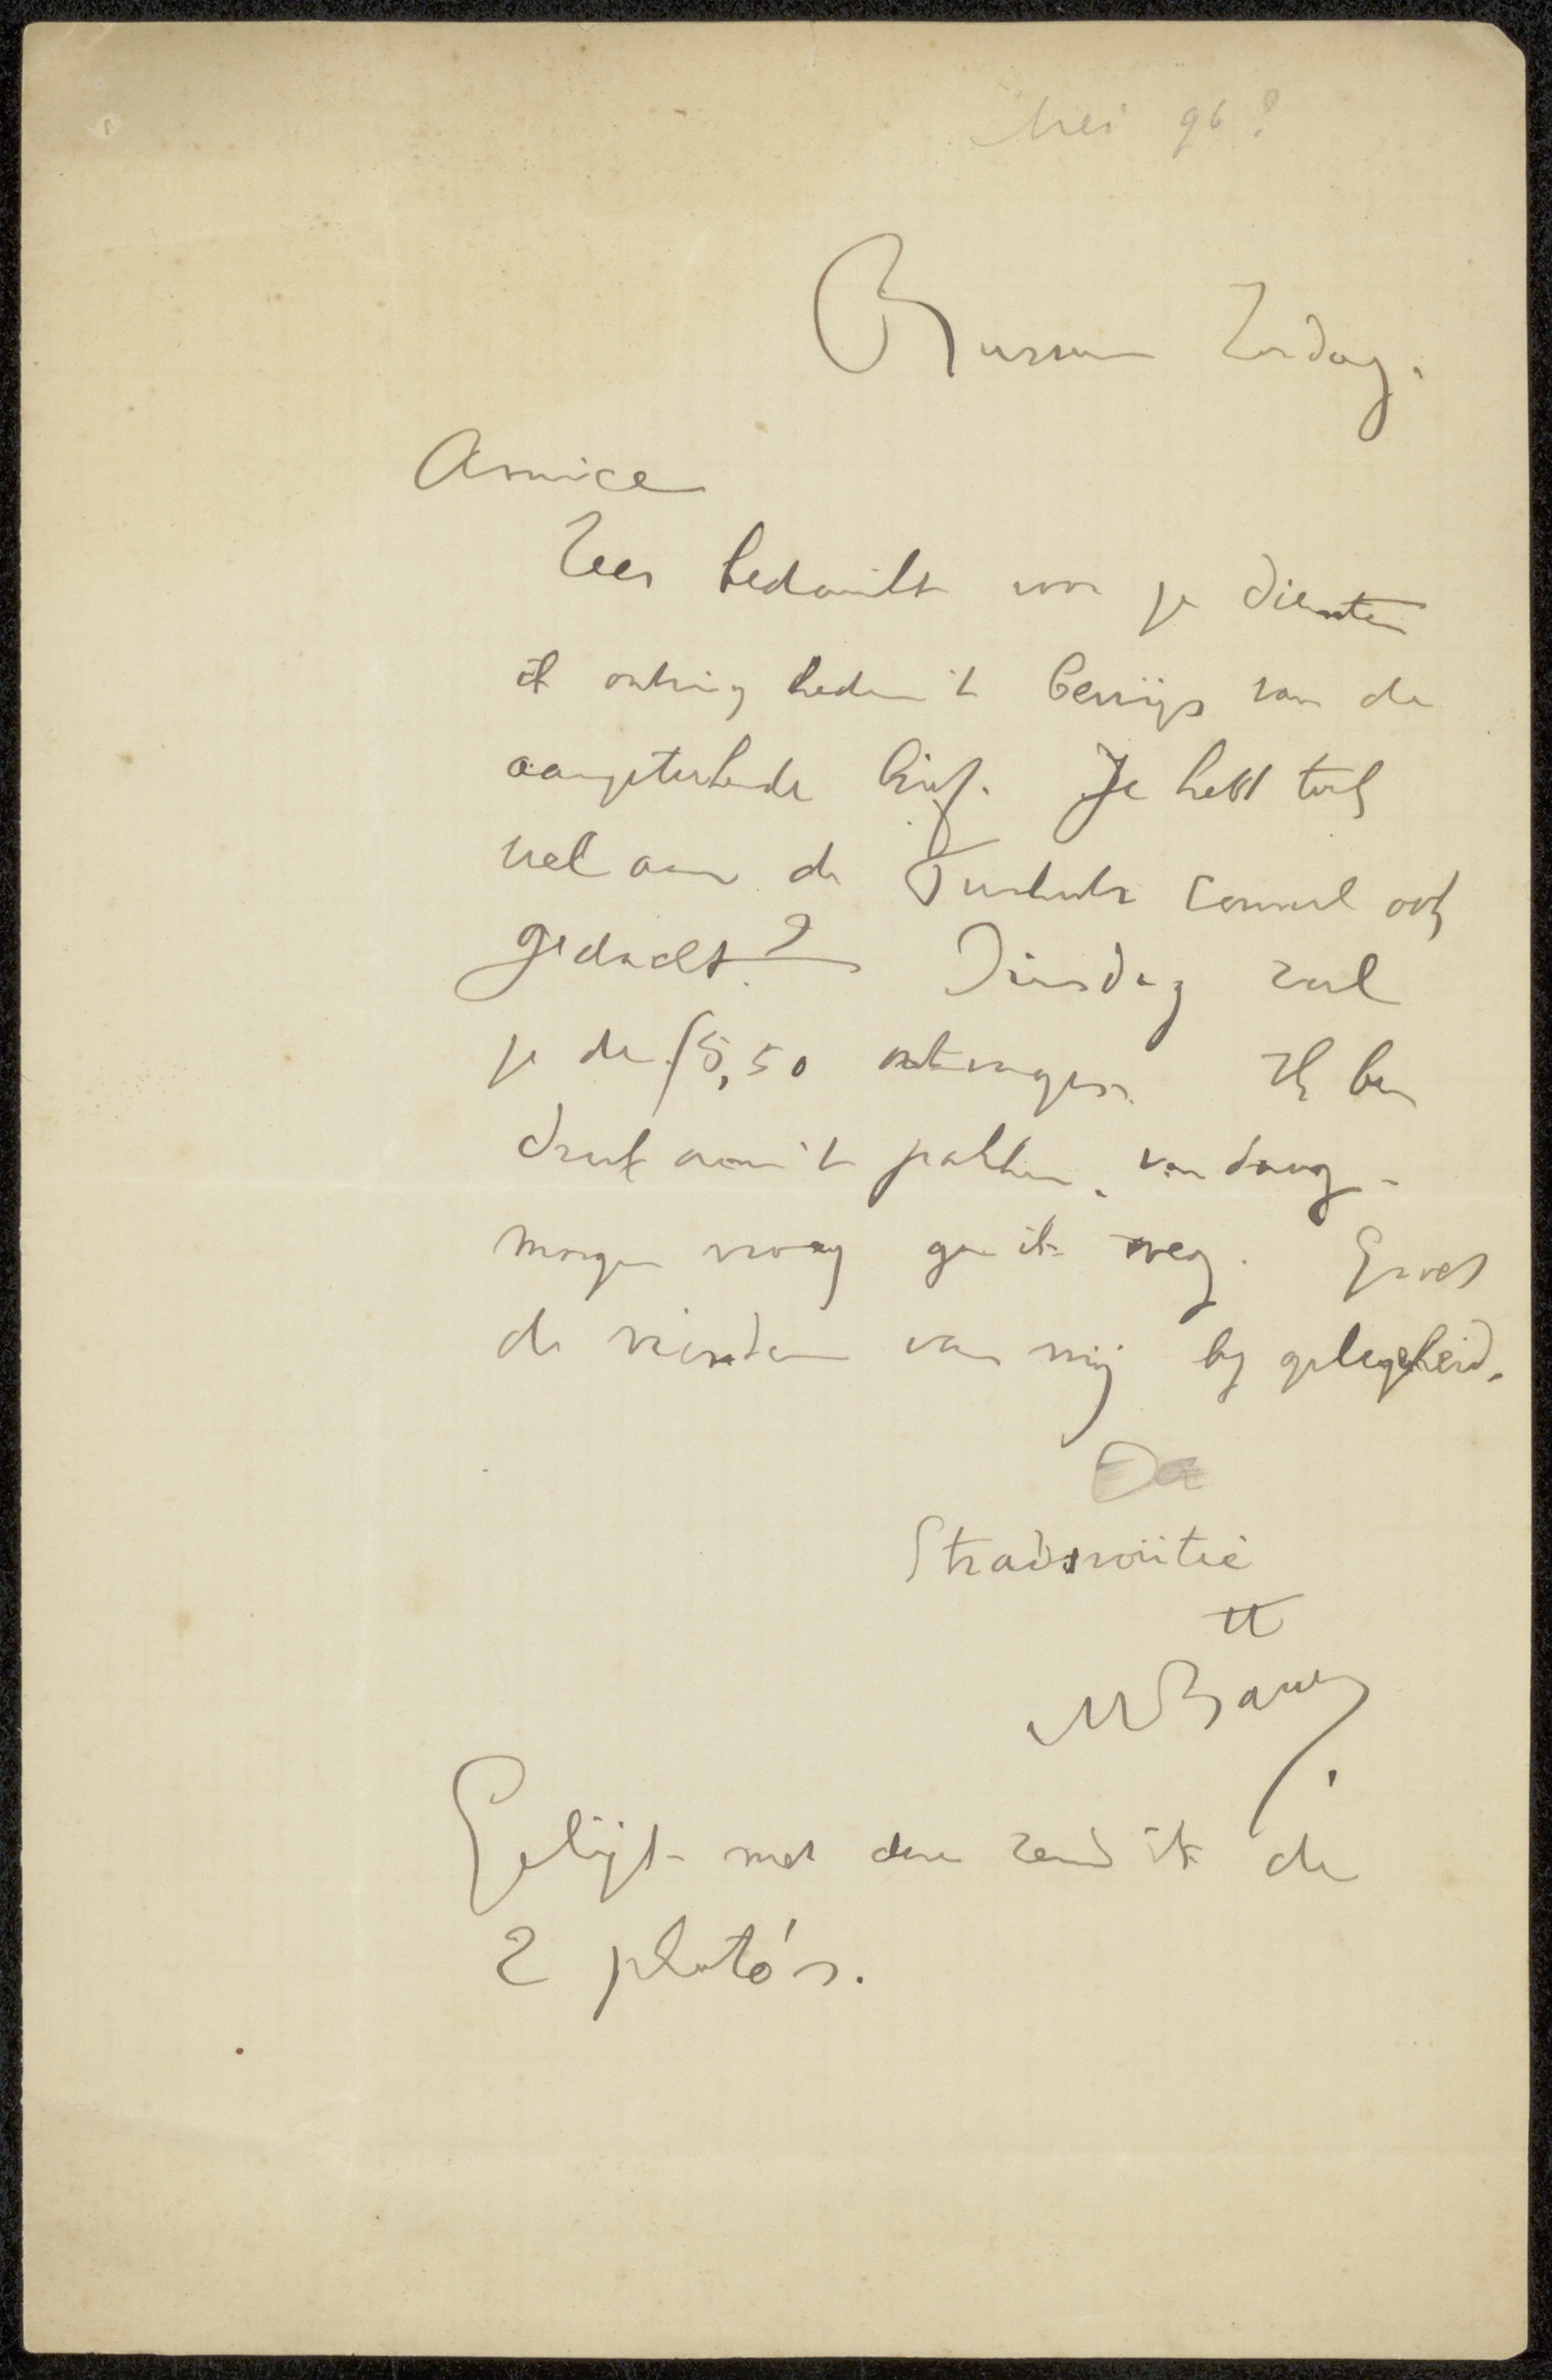 Mei 96?
Bussum Zondag.
Amice
Zeer bedankt voor je diensten
ik ontving heden 't bewijs van de
aangeteekende brief. Je hebt toch
wel aan de Turksche consul ook
gedacht? Dinsdag zal
je de f5,50 ontvangen. Ik ben
druk aan 't pakken, vandaag -
morgen vroeg ga ik weg. Groet
de vrienden van mij bij gelegenheid.
tt
MBauer
Gelijk met deze zend ik de
2 photo's.